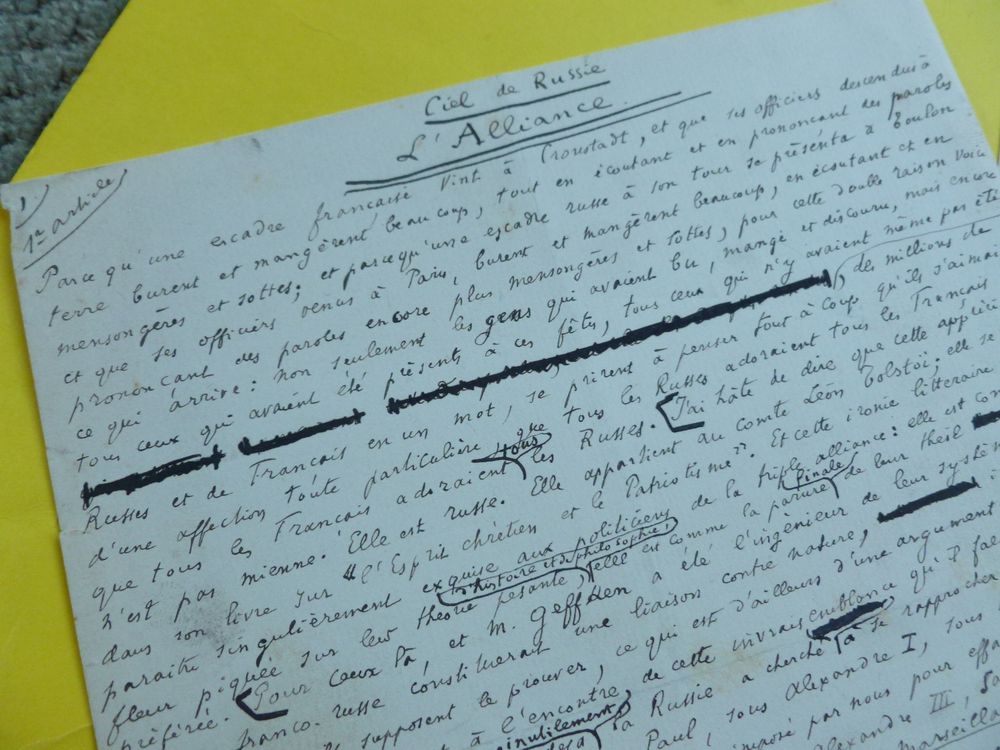 Ciel de Russie
L'Alliance.
1.
1er article
Parce qu'une escadre française vint à Cronstadt, et que ses officiers descendus à
terre burent et mangèrent beaucoup, tout en écoutant et en prononçant des paroles
mensongères et sottes; et parcequ'une escadre russe à son tour se présenta à Toulon
et que ses officiers venus à Paris, burent et mangèrent beaucoup, en écoutant et en
prononçant des paroles encore plus mensongères et sottes, pour cette double raison voici
ce qui arrive: non seulement les gens qui avaient bu, mangé et discouru, mais encore
tous ceux qui avaient été présents à ces fêtes, tous ceux qui n'y avaient même pas été
des millions de
Russes et de Français en un mot, se prirent à penser tout à coup qu'ils s'aimaient
d'une affection toute particulière que tous les Russes adoraient tous les Français
que tous les Français adoraient tous les Russes. J'ai hâte de dire que cette
n'est pas mienne. Elle est russe. Elle appartient au comte Léon Tolstoï; elle se
dans son livre sur "l'Esprit chrétien et le Patriotisme". Et cette ironie litteraire
paraitra singulièrement exquise aux politiciens de la triple alliance: elle est
d'histoire et de philosophie; finale
fleur piquée sur leur theorie pesante, elle est comme la parure de leur
préférée. Pour ceux là, et M. Geffken a été l'ingénieur de leur
franco-russe constituerait une liaison contre nature,
supposent le prouver, ce qui est d'ailleurs d'une argument
à l'encontre de cette invraisemblance qu'il
inutilement la Russie a cherché à se rapprocher
Paul, sous Alexandre I, sous
par nous pour
Alexandre III,